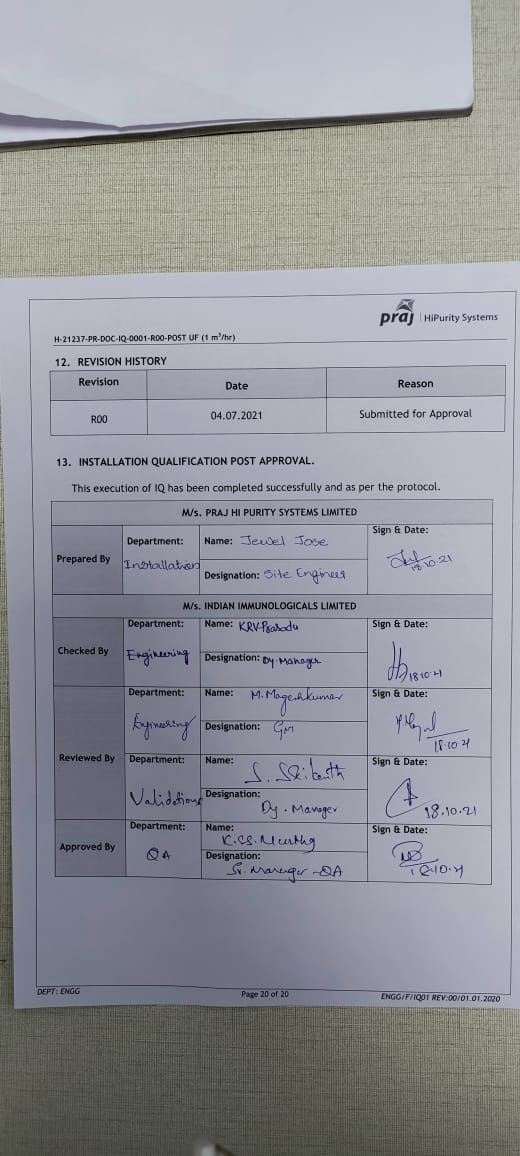 praj | HiPurity Systems
H-21237-PR-DOC-IQ-0001-R00-POST UF (1 m³/hr)
12. REVISION HISTORY
Revision Date Reason
R00 04.07.2021 Submitted for Approval
13. INSTALLATION QUALIFICATION POST APPROVAL.
This execution of IQ has been completed successfully and as per the protocol.
M/s. PRAJ HI PURITY SYSTEMS LIMITED
Prepared By
Department:
Installation
Name: Jewel Jose
Designation: Site Engineer
Sign & Date:
18.10.21
M/s. INDIAN IMMUNOLOGICALS LIMITED
Checked By
Department:
Engineering
Name: KRV Prasadu
Designation: Dy. Manager
Sign & Date:
18.10.21
Reviewed By
Department:
Engineering
Name: M. Mageshkumar
Designation: GM
Sign & Date:
18.10.21
Department:
Validations
Name:
S. Srikanth
Designation:
Dy. Manager
Sign & Date:
18.10.21
Approved By
Department:
QA
Name:
K.CS. Murthy
Designation:
Sr. Manager - QA
Sign & Date:
18.10.21
DEPT: ENGG
Page 20 of 20
ENGG/F/IQ01 REV:00/01.01.2020